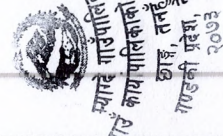 म्याग्दे गाउँपालि
गाउँ कार्यपालिकाको
गण्डकी प्रदेश,
२०७३